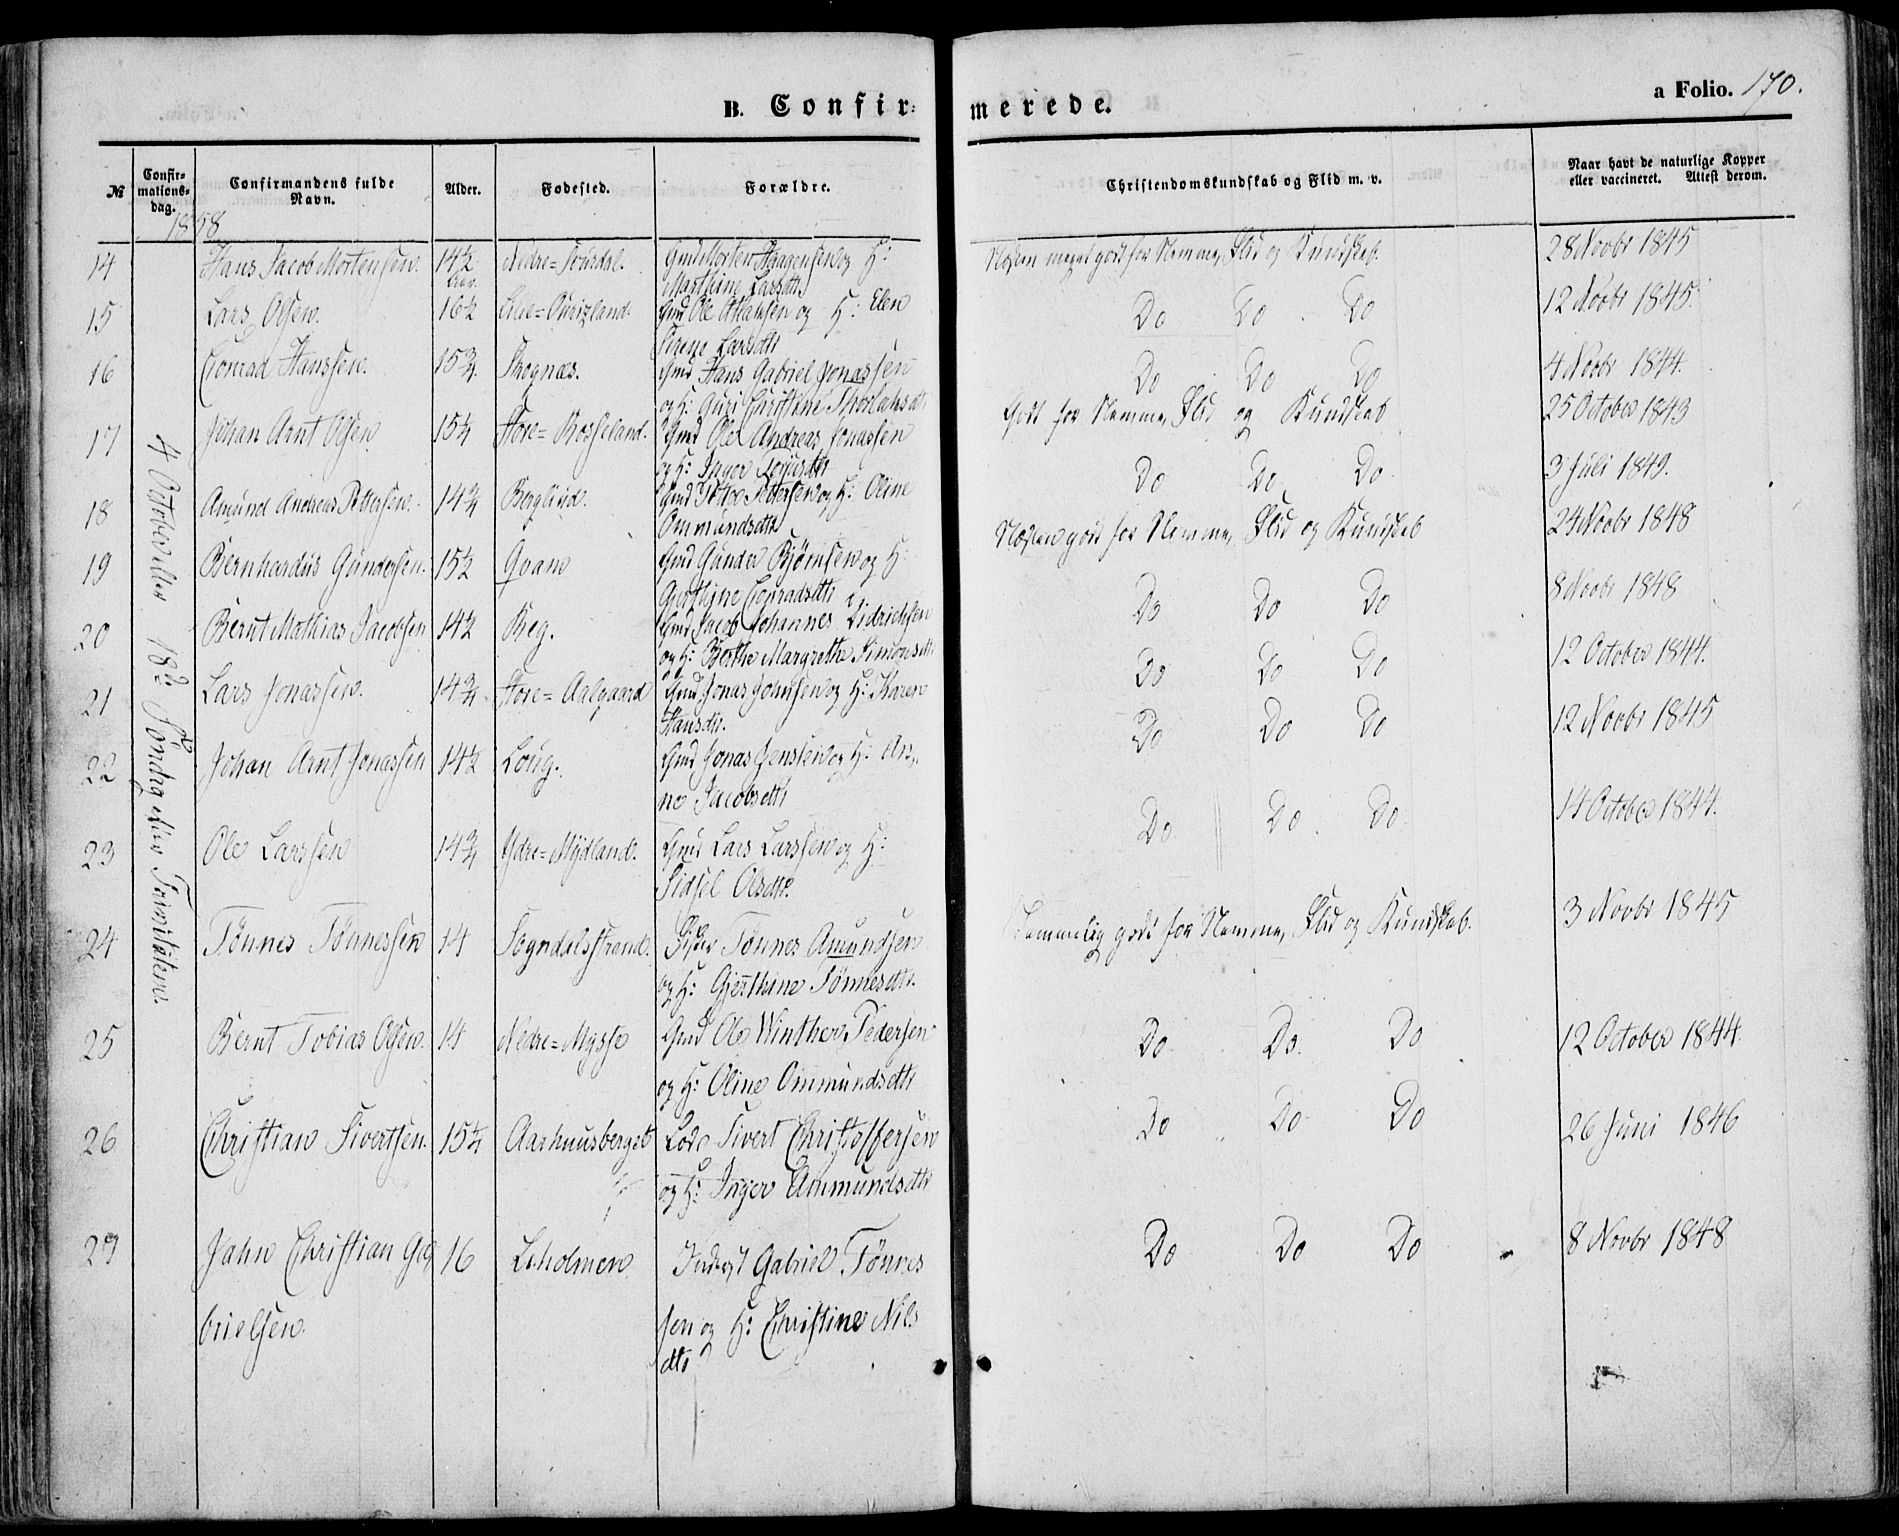 B. Confir-
merede.
a Folio. 170.
№
Confir-
mations-
dag.
Confirmandens fulde
Navn.
Alder.
Fødested.
Forældre.
Christendomskundskab og Flid m. v.
Naar havt de naturlige Kopper
eller vaccineret. Attest derom.
1858
4 October eller 18de Søndag efter Trinitatem
14 Hans Jacob Mortensen. 14½ Nedre= Gmd Morten Haagensen og H: 28 Novbr 1845
Aar. Marthine Larsdtr
Næsten meget godt for Nemme, Flid og Kundskab.
15 Lars Olsen. 16½ Gmd Ole og H: Elen Do Do Do 12 Novbr 1845.
Sirene Larsdtr
16 Conrad Hanssen. 15¾ Skognæs. Gmd Hans Gabriel Jonassen Do Do Do 4 Novbr 1844.
og H: Guri Christine dtr
17 Johan Arnt Olsen 15½ Store=Rosseland. Gmd Ole Andreas Jonassen Godt for Nemme, Flid og Kundskab 25 October 1843
og H: Inger dtr
18 Amund Andreas Pettersen. 14¾ Berglund. Gmd Petter Pettersen og H: Oline Do Do Do 3 Juli 1849.
Ommundsdtr
19 Bernhardus Gundersen. 15½ Qvam Gmd Gunder Bjørnsen og H: Næsten godt for Nemme, Flid og Kundskab 24 Novbr 1848
Gurthine Conradsdtr
20 Bernt Mathias Jacobsen 14½ Reg. Gmd Jacob Johannes Didrichsen Do Do Do 8 Novbr 1848
og H: Berthe Margrethe Simonsdtr
21 Lars Jonassen. 14¾ Store=Aalgaard Gmd Jonas Johnsen og H: Karen Do Do Do 12 October 1844.
Hansdtr.
22 Johan Arnt Jonassen 14½ Loug. Gmd Jonas Jenssen og H: An- Do Do Do 12 Novbr 1845
ne Jacobsdtr
23 Ole Larssen 14¾ Ydre=Mydland. Gmd Lars Larssen og H: Do Do Do 14 October 1844.
Sidsel Olsdtr.
24 Tønnes Tønnessen 14 Sogndalsstrand. Fisker Tønnes Amundsen Temmelig godt for Nemme, Flid og Kundskab. 3 Novbr 1845
og H: Gjerthine Tønnesdtr.
25 Bernt Tobias Olsen. 14 Nedre=Mysse Gmd Ole Winther Pedersen Do Do Do 12 October 1844.
og H: Oline Ommundsdtr
26 Christian Sivertsen. 15¼ Aarhuusberget Lods Sivert Christoffersen Do Do Do 26 Juni 1846
og H: Inger Ammundsdtr
27 Jahn Christian Ga- 16 Leholmen Inderst Gabriel Tønnes Do Do Do 8 Novbr 1848
brielsen. sen og H: Christine Nils
dtr